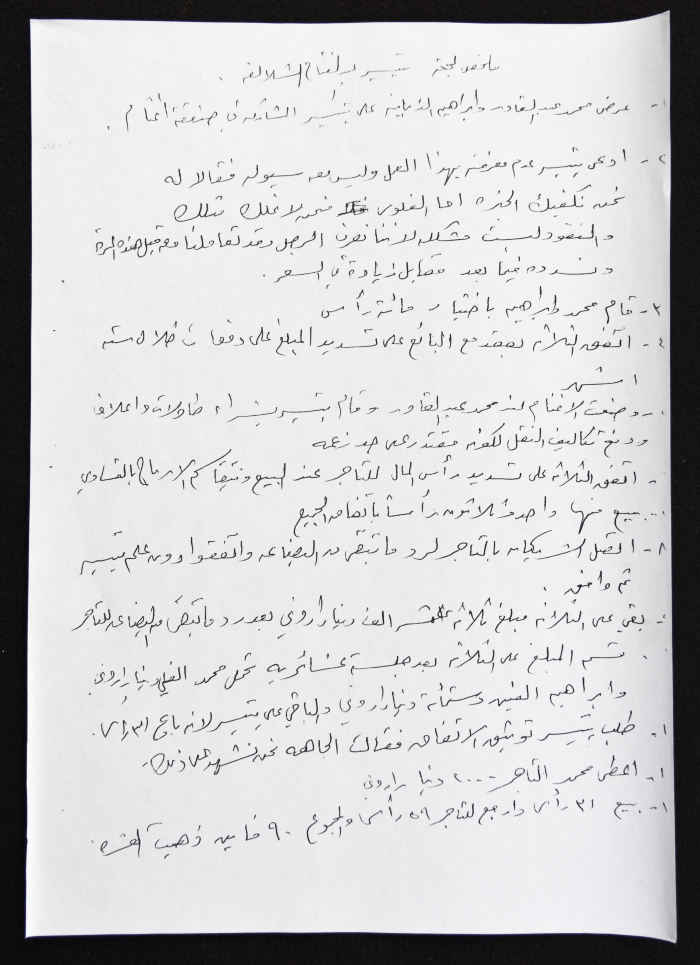 تيسير عبد الفتاح الشلالفه .
١- عرض محمد عبد القادر وابراهيم الذبابنه على تيسير الشراكة في صفقة أغنام .
٢- ادعى تيسير عدم معرفته بهذا العمل وليس معه سيوله فقالا له
نحن نكفيك الخبره اما الفلوس فنحن لا نملك مثلك
والنقود ليست مشكله لاننا نعرف الرجل وقد تعاملنا معه قبل هذه المرة
ونسدده فيما بعد مقابل زيادة في السعر .
٣- قام محمد وابراهيم باختيار مائة رأس
٤- اتفق الثلاثه بعقد مع البائع على تسديد المبلغ على دفعات خلال سته
اشهر
- وضعت الاغنام عند محمد عبد القادر وقام تيسير بشراء طاولات واعلاف
ودفع تكاليف النقل لكونه مقتدر على حد زعمه
- اتفق الثلاثه على تسديد رأس المال للتاجر عند البيع وتقاسم الارباح بالتساوي
- بيع منها واحد وثلاثون رأسا باتفاق الجميع
٨- اتصل الشريكان بالتاجر لرد ما تبقى من البضاعه واتفقوا دون علم تيسير
ثم وافق .
- بقي على الثلاثه مبلغ ثلاثة عشر الف دينار اردني بعد رد ما تبقى من البضاعه للتاجر
. قسم المبلغ على الثلاثه بعد جلسة عشائريه تحمل محمد الفي دينار اردني
وابراهيم الفين وستمائة دينار اردني والباقي على تيسير لانه باع ٣١ راس .
١- طلب تيسير توثيق الاتفاق فقالت الجاهه نحن نشهد على ذلك .
١- اعطى محمد التاجر ٢٠٠٠ دينار اردني
١- بيع ٣١ رأس وارجع للتاجر ٥٩ رأس والمجموع ٩٠ فاين ذهبت العشره